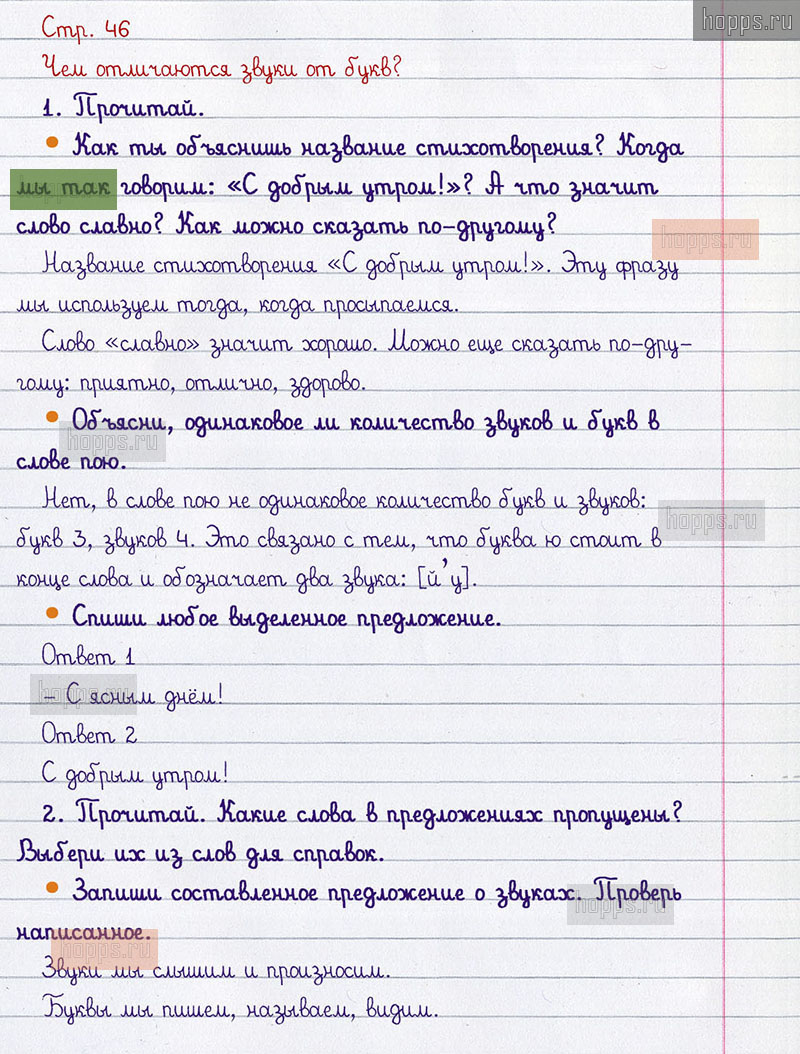 hopps.ru
Стр. 46
Чем отличаются звуки от букв?
1. Прочитай.
• Как ты объяснишь название стихотворения? Когда
мы так говорим: «С добрым утром!»? А что значит
слово славно? Как можно сказать по-другому?
hopps.ru
Название стихотворения «С добрым утром!». Эту фразу
мы используем тогда, когда просыпаемся.
Слово «славно» значит хорошо. Можно еще сказать по-дру-
гому: приятно, отлично, здорово.
• Объясни, одинаковое ли количество звуков и букв в
hopps.ru
слове пою.
Нет, в слове пою не одинаковое количество букв и звуков:
hopps.ru
букв 3, звуков 4. Это связано с тем, что буква ю стоит в
конце слова и обозначает два звука: [й'у].
• Спиши любое выделенное предложение.
Ответ 1
hopps.ru
– С ясным днём!
Ответ 2
С добрым утром!
2. Прочитай. Какие слова в предложениях пропущены?
Выбери их из слов для справок.
• Запиши составленное предложение о звуках. Проверь
hopps.ru
написанное.
hopps.ru
Звуки мы слышим и произносим.
Буквы мы пишем, называем, видим.